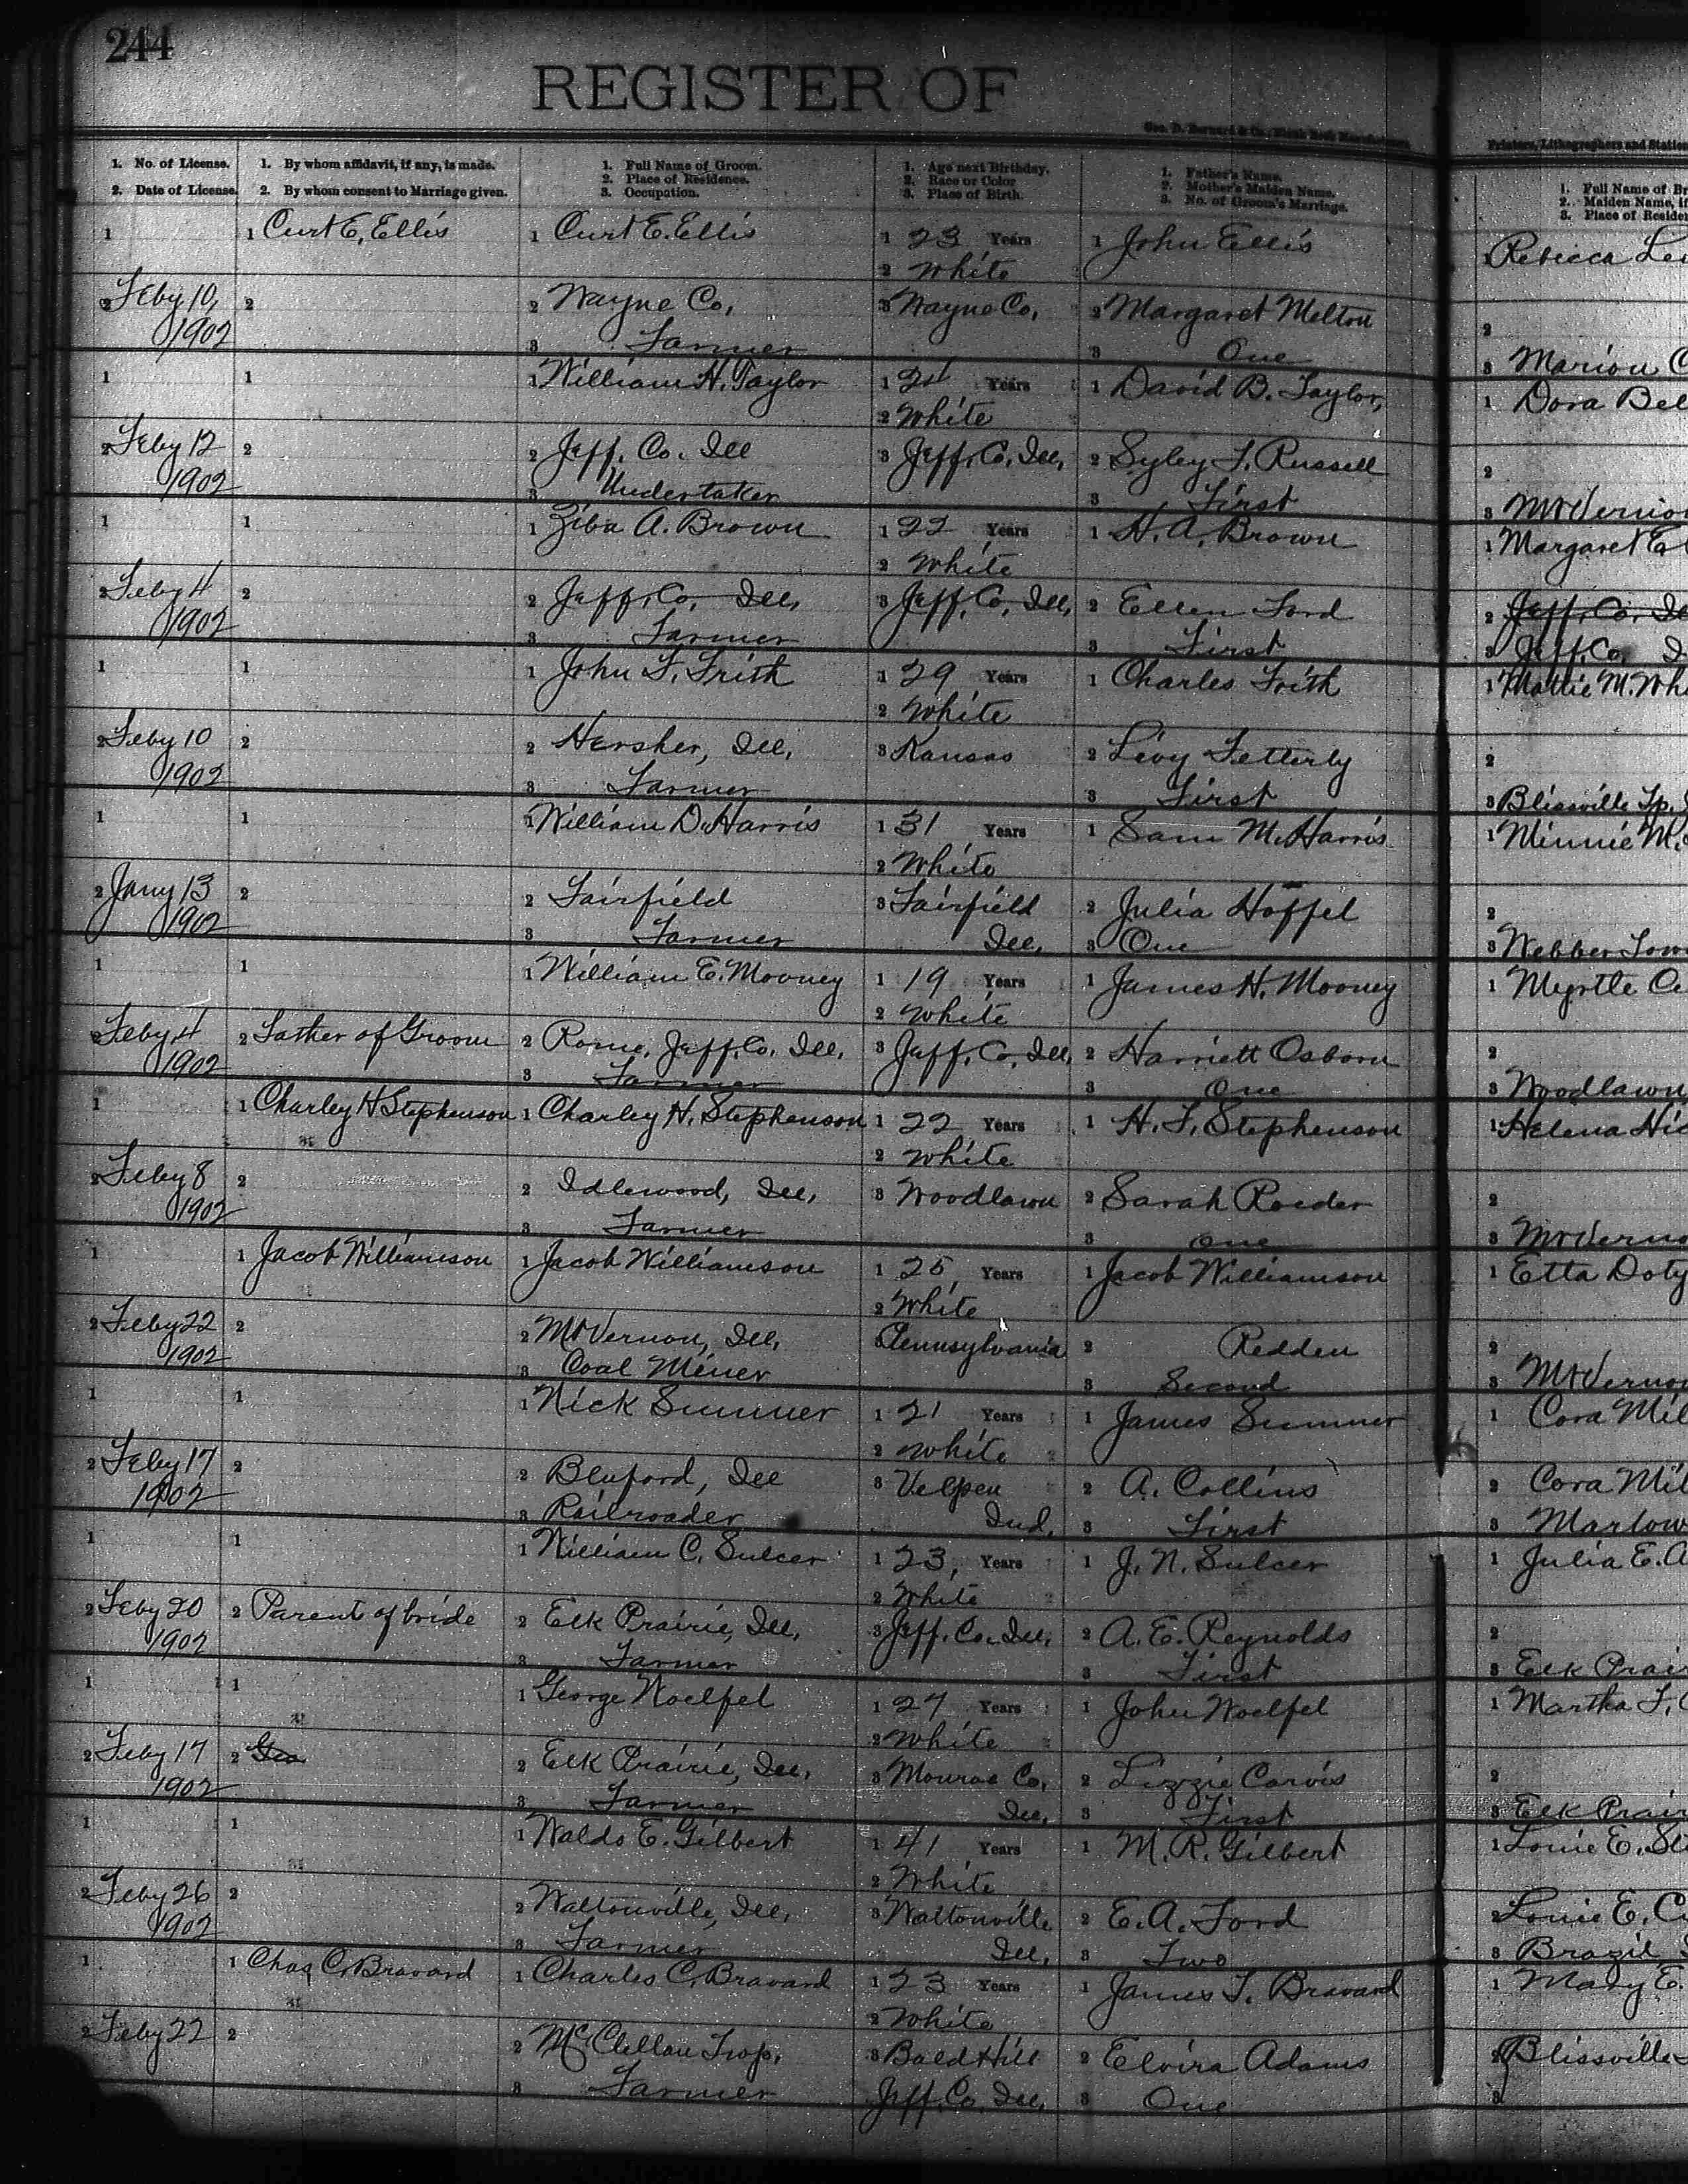 244
REGISTER OF
Geo. D. Barnard & Co., Blank Book Manufacturers
Printers, Lithographers and Station
1. No. of License.
2. Date of License.
1. By whom affidavit, if any, is made.
2. By whom consent to Marriage given.
1. Full Name of Groom.
2. Place of Residence.
3. Occupation.
1. Age next Birthday.
2. Race or Color
3. Place of Birth.
1. Father's Name.
2. Mother's Maiden Name.
3. No. of Groom's Marriage.
1. Full Name of Br
2. Maiden Name, if
3. Place of Residen
1 1 Curt E. Ellis 1 Curt E. Ellis 1 23 Years 1 John Ellis Rebecca Le
2 White
2 Feby 10, 2 2 Wayne Co, 3 Wayne Co, 2 Margaret Melton 2
1902 3 Farmer 3 One 3 Marion C
1 1 1 William H. Taylor 1 24 Years 1 David B. Taylor, 1 Dora Bel
2 White
2 Feby 12 2 2 Jeff. Co. Ill 3 Jeff. Co, Ill, 2 Syley F. Russell 2
1902 3 Undertaker 3 First 3 Mt Vernon
1 1 1 Ziba A. Brown 1 22 Years 1 H. A. Brown 1 Margaret E
2 White
2 Feby 4 2 2 Jeff. Co, Ill, 3 Jeff. Co, Ill, 2 Ellen Ford 2 Jeff. Co. Il
1902 3 Farmer 3 First 3 Jeff. Co. I
1 1 1 John F. Frith 1 29 Years 1 Charles Frith 1 Mattie M. Wh
2 White
2 Feby 10 2 2 Hersher, Ill, 3 Kansas 2 Livy Fetterly 2
1902 3 Farmer 3 First 3 Blissville Tp.
1 1 1 William D. Harris 1 31 Years 1 Sam M. Harris 1 Minnie M.
2 White
2 Jany 13 2 2 Fairfield 3 Fairfield 2 Julia Hoffel 2
1902 3 Farmer Ill, 3 One 3 Webber Tow
1 1 1 William E. Mooney 1 19 Years 1 James H. Mooney 1 Myrtle Ce
2 White
2 Feby 4 2 Father of Groom 2 Rome, Jeff. Co, Ill, 3 Jeff. Co, Ill, 2 Harriett Osborn 2
1902 3 Farmer 3 One 3 Woodlawn
1 1 Charley H Stephenson 1 Charley H. Stephenson 1 22 Years 1 H. F. Stephenson 1 Helena Hic
2 White
2 Feby 8 2 2 Idlewood, Ill, 3 Woodlawn 2 Sarah Roeder 2
1902 3 Farmer 3 One 3 Mt Verno
1 1 Jacob Williamson 1 Jacob Williamson 1 25, Years 1 Jacob Williamson 1 Etta Doty
2 White
2 Feby 22 2 2 Mt Vernon, Ill, 3 Pennsylvania 2 Redden 2
1902 3 Coal Miner 3 Second 3 Mt Vernon
1 1 1 Nick Sumner 1 21 Years 1 James Sumner 1 Cora Mil
2 White
2 Feby 17 2 2 Bluford, Ill 3 Velpen 2 A. Collins 2 Cora Mil
1902 3 Railroader Ind, 3 First 3 Marlow
1 1 1 William C. Sulcer 1 23, Years 1 J. N. Sulcer 1 Julia E. A
2 White
2 Feby 20 2 Parent of bride 2 Elk Prairie, Ill, 3 Jeff. Co. Ill, 2 A. E. Reynolds 2
1902 3 Farmer 3 First 3 Elk Prair
1 1 1 George Woelfel 1 27 Years 1 John Woelfel 1 Martha F.
2 White
2 Feby 17 2 Geo 2 Elk Prairie, Ill, 3 Monroe Co, 2 Lizzie Carvis 2
1902 3 Farmer Ill, 3 First 3 Elk Prair
1 1 1 Waldo E. Gilbert 1 41 Years 1 M. R. Gilbert 1 Louie E. St
2 White
2 Feby 26 2 2 Waltonville, Ill, 3 Waltonville 2 E. A. Ford 2 Louie E. C
1902 3 Farmer Ill, 3 Two 3 Brazil
1 1 Chas C. Bravard 1 Charles C. Bravard 1 23 Years 1 James T. Bravard 1 Mary E.
2 White
2 Feby 22 2 2 McClellan Twp. 3 Bald Hill 2 Elvira Adams 2 Blissville
3 Farmer Jeff. Co, Ill, 3 One 3